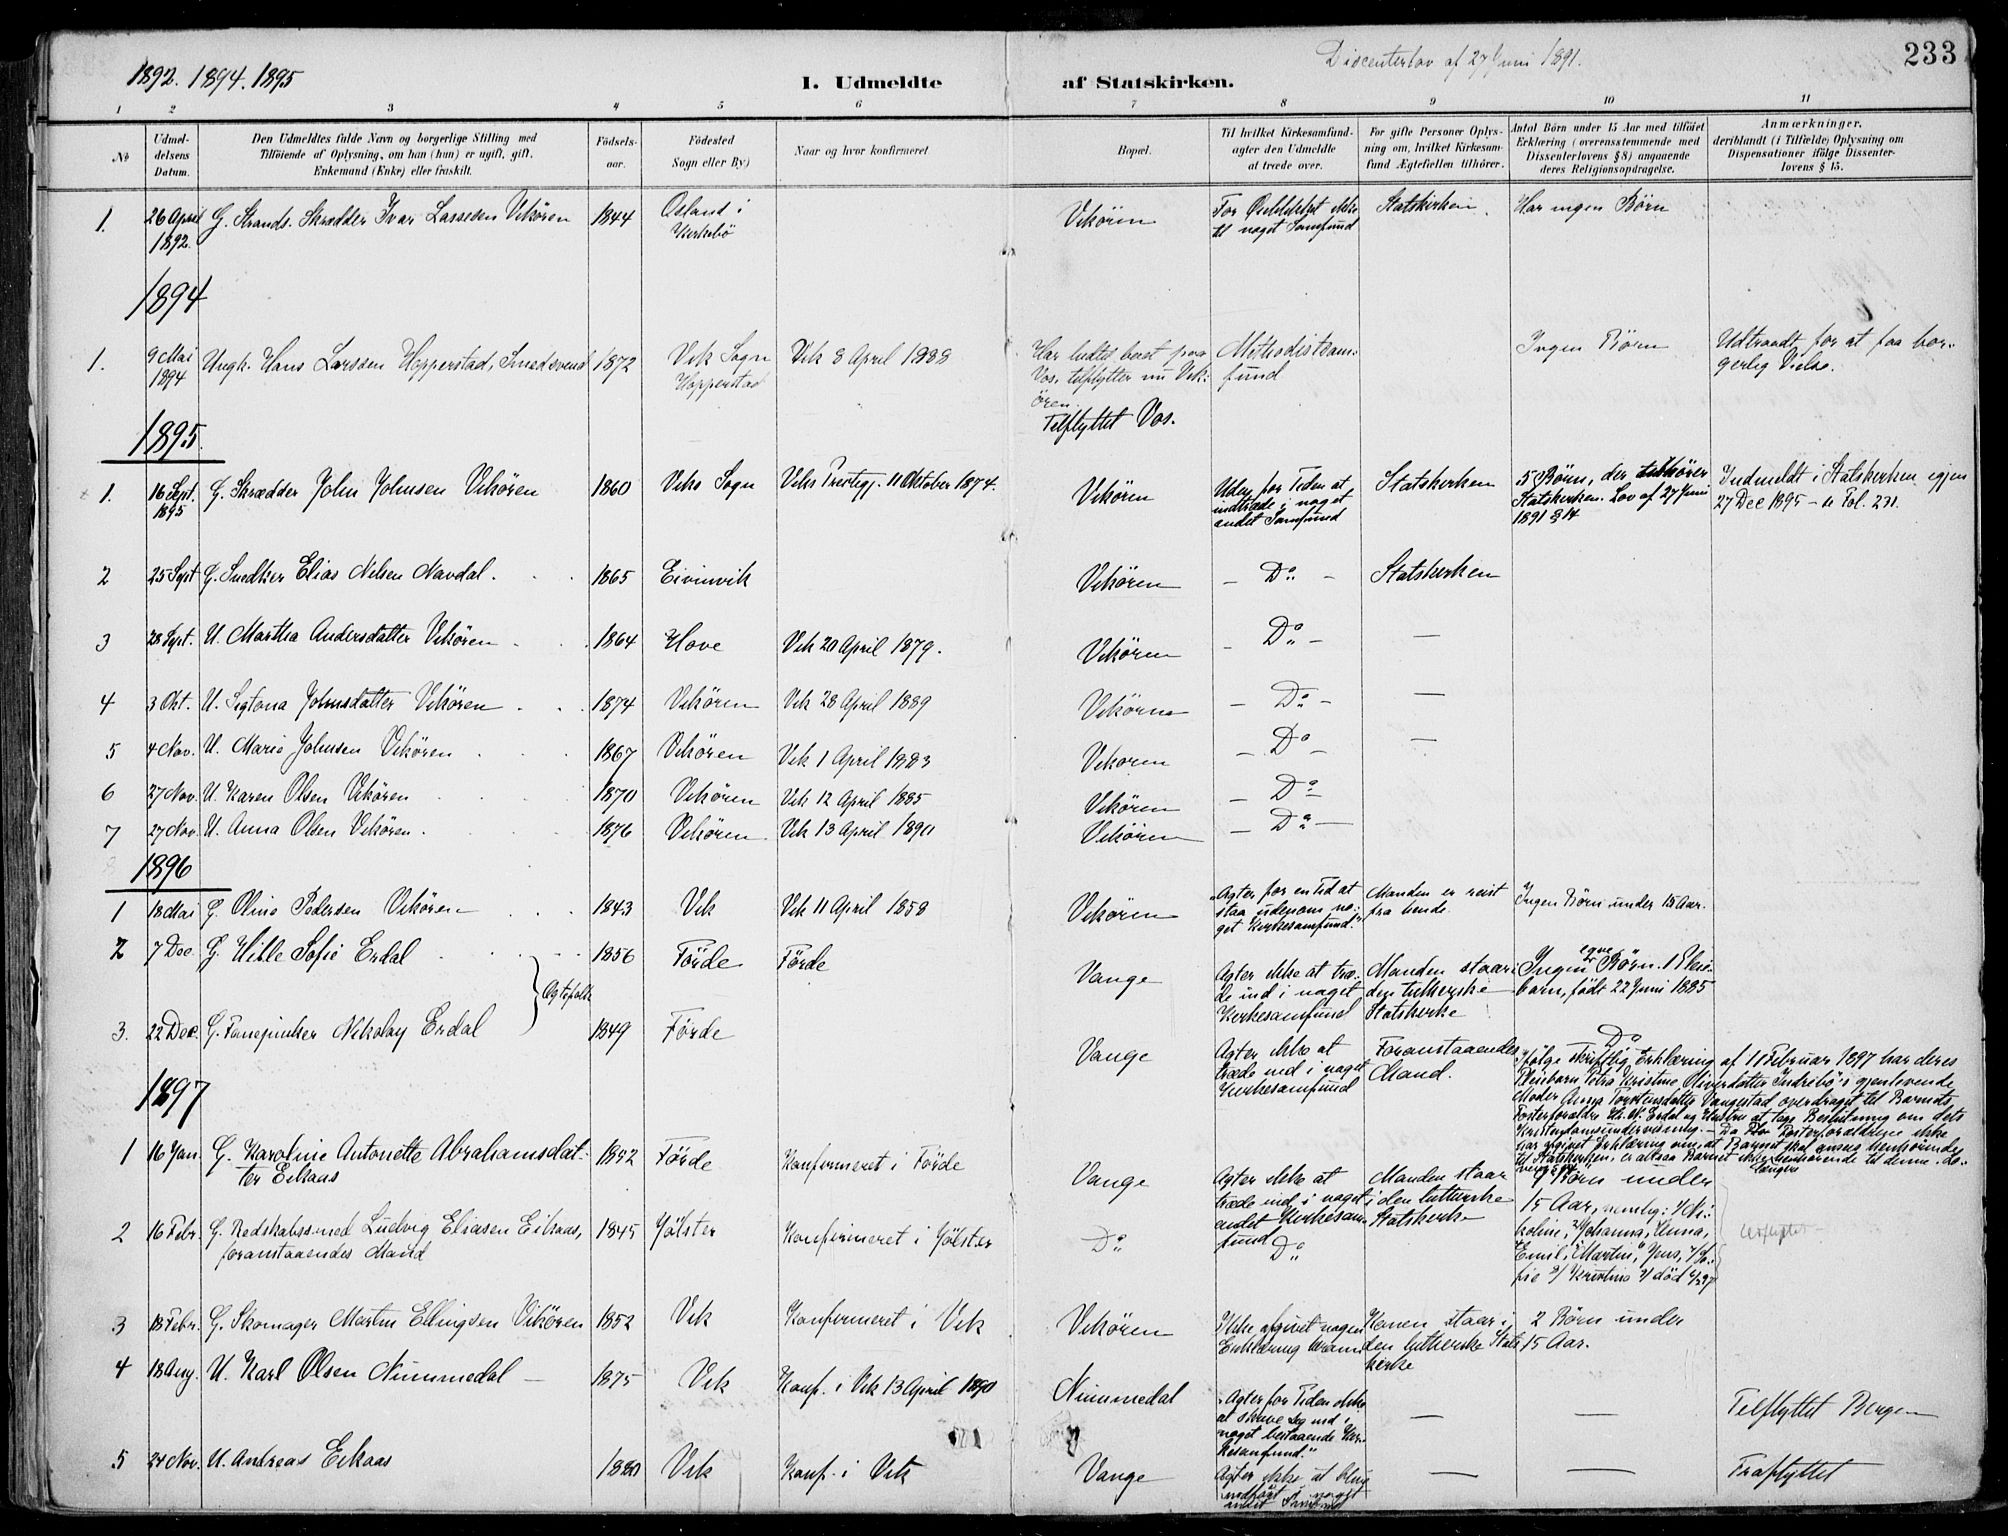 1892. 1894. 1895
Discenterlov af 27 Juni 1891.
233
I. Udmeldte af Statskirken.
1 2 3 4 5 6 7 8 9 10 11
№
Udmeldelsens Datum.
Den Udmeldtes fulde Navn og borgerlige Stilling med
Tilföiende af Oplysning, om han (hun) er ugift, gift,
Enkemand (Enke) eller fraskilt.
Födselsaar.
Födested
Sogn eller By)
Naar og hvor konfirmeret
Bopæl.
Til hvilket Kirkesamfund
agter den Udmeldte
at træde over.
For gifte Personer Oplysning om, hvilket Kirkesamfund Ægtefællen tilhörer.
Antal Börn under 15 Aar med tilföiet
Erklæring (overensstemmende med
Dissenterlovens § 8) angaaende
deres Religionsopdragelse.
Anmærkninger,
deriblandt (i Tilfælde) Oplysning om
Dispensationer ifölge Dissenterlovens § 15.
1. 26 April 1892. G. Strands. Skrædder Ivar Lassesen Vikören 1844 Osland i Kirkebö Vikören For Øieblikket ikke til noget Samfund Statskirken. Har ingen Börn
1894
1. 9 Mai 1894 Ungk. Hans Larssen Hopperstad, Smedsvend 1872 Vik Sogn Hopperstad Vik 8 April 1888 Har hidtil boet paa Vos, tilflytter nu Vikören. Methodistsamfund Ingen Börn Udtraadt for at faa borgerlig Vielse.
Tilflyttet Vos.
1895.
1. 16 Sept. 1895 G. Skrædder John Johnsen Vikören 1860 Viks Sogn Viks Prestegj. 11 Oktober 1874. Vikören Uden for Tiden at indtræde i noget andet Samfund Statskirken 5 Börn, der tilhörer Statskirken. Lov af 27 Juni 1891 § 14 Indmeldt i Statskirken igjen 27 Dec 1895 – se Fol. 231.
2 25 Sept G. Snedker Elias Nilsen Navdal. 1865 Eivinvik Vikören – Do – Statskirken
3 28 Sept. U. Martha Andersdatter Vikören 1864 Hove Vik 20 April 1879. Vikören – Do – —
4 3 Okt. U. Sigtona Johnsdatter Vikören 1874 Vikören Vik 28 April 1889 Vikören – Do – —
5 4 Nov. U. Marie Johnsen Vikören 1867 Vikören Vik 1 April 1883 Vikoren – Do – —
6 27 Nov. U. Karen Olsen Vikören 1870 Vikören Vik 12 April 1885 Vikören – Do
7 27 Nov. U. Anna Olsen Vikören. 1876 Vikören Vik 13 April 1890 Vikören – Do —
1896
1 18 Mai G. Oline Pedersen Vikören 1843 Vik Vik 11 April 1858 Vikören "Agter for en Tid at staa udenom noget Kirkesamfund." Manden er reist fra hende. Ingen Börn under 15 Aar.
2 7 Dec. G. Hille Sofie Erdal 1856 Förde Förde Vange Agter ikke at træde ind i noget Kirkesamfund Manden staar i den lutherske Statskirke Ingen egne Börn. 1 Pleiebarn, födt 22 Juni 1885
} Ægtefolk
3. 22 Dec. G. Nikolay Erdal 1849 Förde Vange Agter ikke at træde ind i noget Kirkesamfund Foranstaaendes Mand. Do
Ifölge skriftlig Erklæring af 11 Februar 1897 har deres
Pleiebarn Petra Kristine Oliversdatter Indrebö's gjenlevende
Moder Anna Torstensdatter Vangestad overdraget til Barnets
Fosterforældre Hr. N. Erdal og Hustru at tage Beslutning om dets
Kristendomsundervisning. – Da Fosterforældrene ikke
har afgivet Erklæring om, at Barnet skal ansees henhörende
til Statskirken, er altsaa Barnet ikke længere henhörende til denne.
1897
1 16 Jan. G. Karoline Antonette Abrahamsdatter Eikaas 1852 Förde Konfirmeret i Förde Vange Agter ikke at træde ind i noget andet Kirkesamfund Manden staar i den lutherske Statskirke Börn under 15 Aar, nemlig: Johanna, Anna, Emil, Martin, Jens,
2 16 Febr. G. Redskabssmed Ludvig Eliasen Eikaas, foranstaaendes Mand 1845 Jölster Konfirmeret i Jölster Do Do
3 18 Febr. G. Skomager Martin Ellingsen Vikören 1852 Vik Konfirmeret i Vik Vikören Ikke afgivet nogen Erklæring herom Konen staar i den lutherske Statskirke 2 Börn under 15 Aar.
4 18 Aug. U. Karl Olsen Nummedal — 1875 Vik Konf. i Vik 13 April 1890 Nummedal "Agter for Tiden ikke at skrive seg ind i noget bestaaende Kirkesamfund." — — Tilflyttet Bergen
5 24 Nov. U. Andreas Eikaas 1880 Vik Konf. i Vik Vange Agter ikke at blive indført i noget — — Fraflyttet